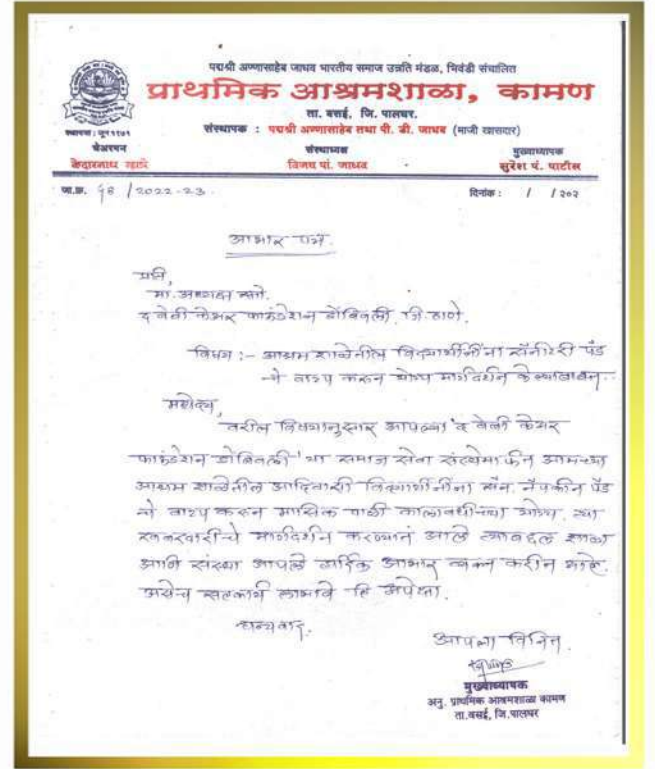 पद्मश्री अण्णासाहेब जाधव भारतीय समाज उन्नति मंडळ, भिवंडी संचालित
प्राथमिक आश्रमशाळा, कामण
ता. वसई, जि. पालघर.
संस्थापक : पद्मश्री अण्णासाहेब तथा पी. डी. जाधव (माजी खासदार)
स्थापना : जून १९७१
चेअरमन संस्थाध्यक्ष मुख्याध्यापक
केदारनाथ म्हात्रे विजय पां. जाधव सुरेश पं. पाटील
जा.क्र. / 2022-23. दिनांक : / / २०२
आभार पत्र.
प्रति,
मा. अध्यक्ष सो.
द वेली केअर फाऊंडेशन डोंबिवली, जि. ठाणे.
विषय :- आश्रम शाळेतील विद्यार्थीनींना सॅनीटरी पॅड
चे वाटप करुन योग्य मार्गदर्शन केल्याबाबत..
महोदय,
वरील विषयानुसार आपल्या 'द वेली केअर
फाऊंडेशन डोंबिवली' या समाज सेवा संस्थेमार्फत आमच्या
आश्रम शाळेतील आदिवासी विद्यार्थीनींना सॅन. नॅपकीन पॅड
चे वाटप करुन मासिक पाळी कालावधीच्या योग्य त्या
खबरदारीचे मार्गदर्शन करण्यात आले त्याबद्दल शाळा
आणि संस्था आपले हार्दिक आभार व्यक्त करीत आहे.
असेच सहकार्य लाभावे हि अपेक्षा.
धन्यवाद.
आपला विनित.
मुख्याध्यापक
अनु. प्राथमिक आश्रमशाळा कामण
ता.वसई, जि.पालघर